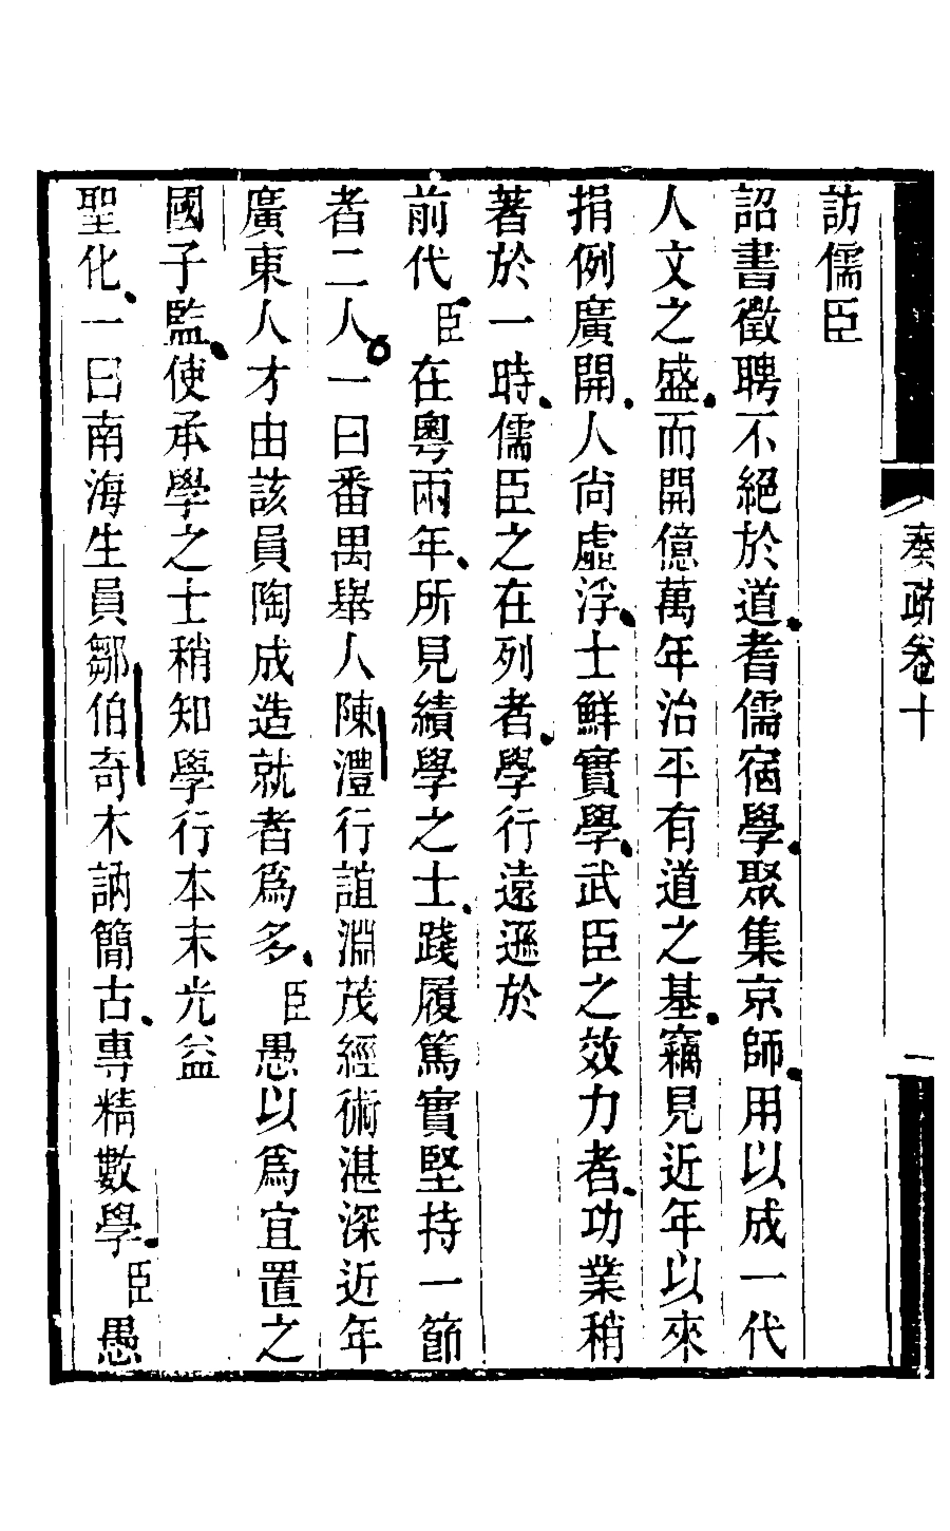 奏疏卷十
一
訪儒臣
詔書徵聘不絕於道耆儒宿學聚集京師用以成一代
人文之盛而開億萬年治平有道之基竊見近年以來
捐例廣開人尚虛浮士鮮實學武臣之效力者功業稍
著於一時儒臣之在列者學行遠遜於
前代臣在粵兩年所見績學之士踐履篤實堅持一節
者二人一曰番禺舉人陳澧行誼淵茂經術湛深近年
廣東人才由該員陶成造就者爲多臣愚以爲宜置之
國子監使承學之士稍知學行本末光益
聖化一曰南海生員鄒伯奇木訥簡古專精數學臣愚